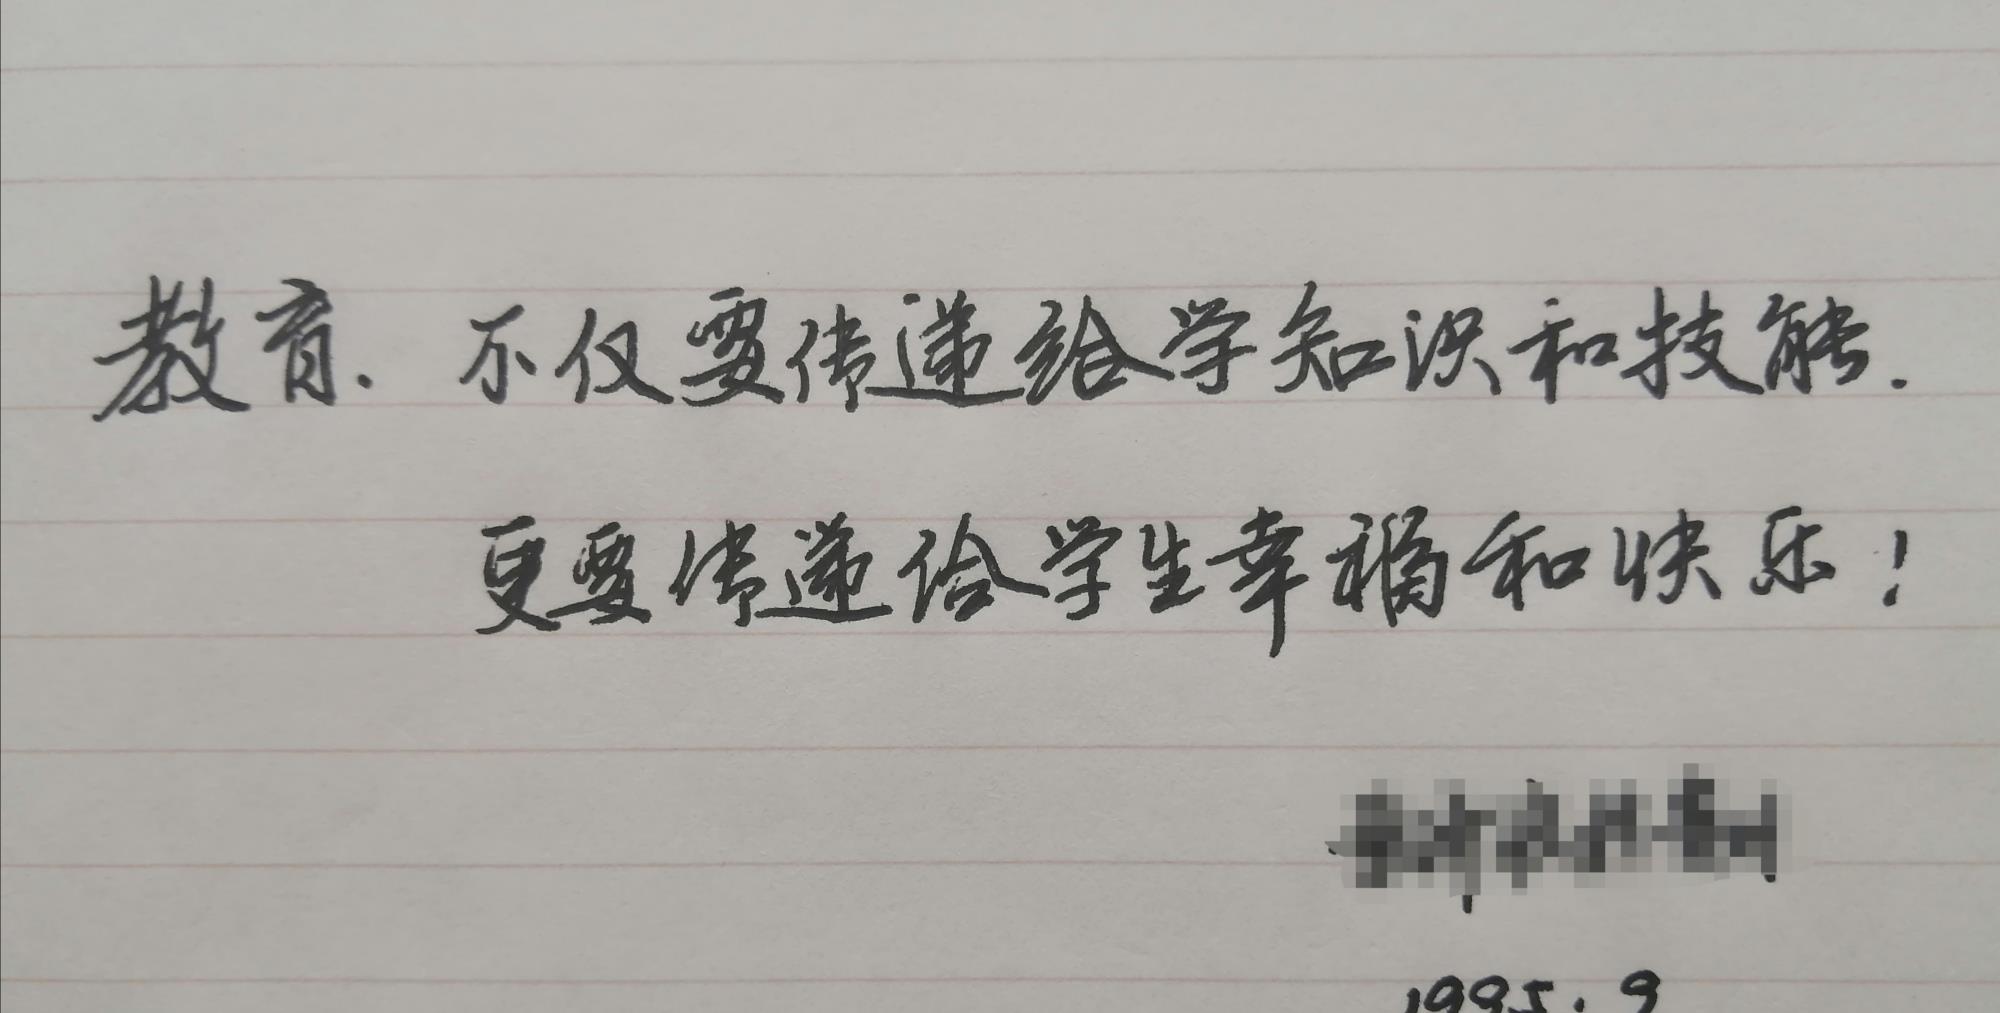 教育.不仅要传递给学知识和技能.
更要传递给学生幸福和快乐！
1995.9